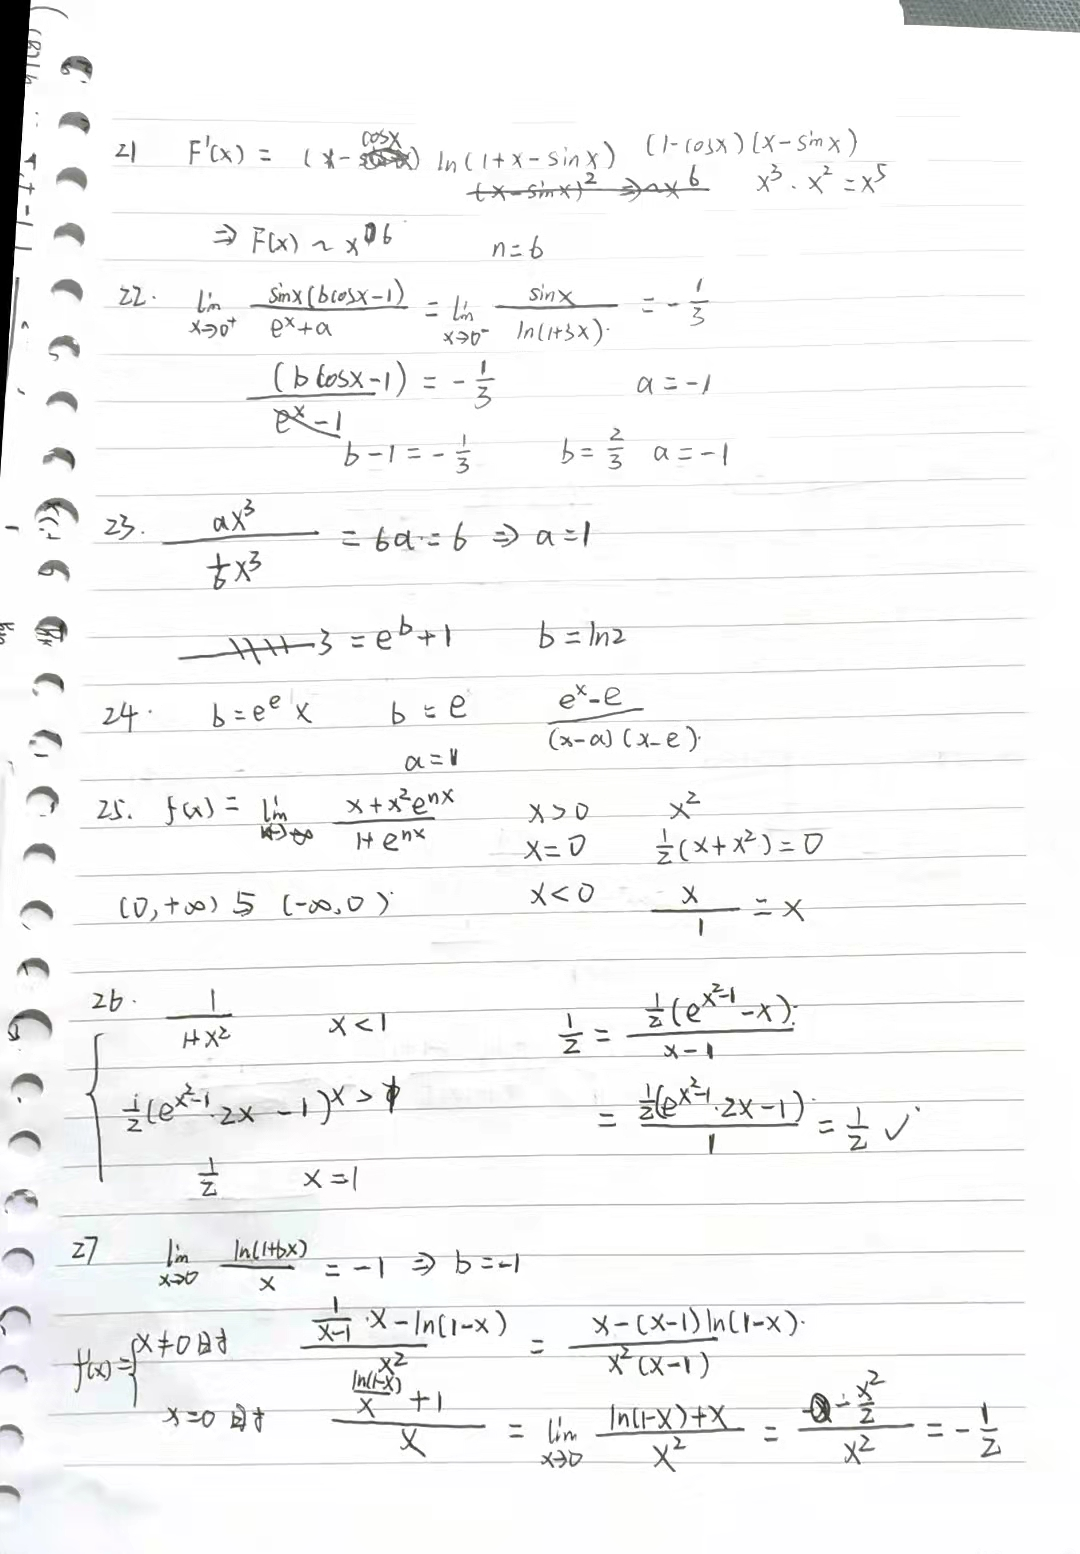 21 F'(x) = (x - cosx) ln(1+x-sinx) (1-cosx)(x-sinx)
(x-sinx)² ⇒ ~x⁶ x³ · x² = x⁵
⇒ F(x) ~ x⁶ n=6
22. lim x→0⁺ sinx(bcosx-1)/(eˣ+a) = lim x→0⁻ sinx/ln(1+3x) = -1/3
(bcosx-1)/(eˣ-1) = -1/3 a=-1
b-1 = -1/3 b=2/3 a=-1
23. ax³/(1/6 x³) = 6a = 6 ⇒ a=1
3 = eᵇ+1 b=ln2
24. b=eᵉ x b=e (eˣ-e)/((x-a)(x-e))
a=1
25. f(x) = lim (x+x²eⁿˣ)/(1+eⁿˣ) x>0 x²
x=0 1/2(x+x²)=0
(0,+∞) 5 (-∞,0) x<0 x/1 = x
26. 1/(1+x²) x<1 1/2 = 1/2(e^(x²-1)-x)/(x-1)
1/2(e^(x²-1)·2x-1) x>1 = 1/2(e^(x²-1)·2x-1)/1 = 1/2 ✓
1/2 x=1
27 lim x→0 ln(1+bx)/x = -1 ⇒ b=-1
f'(x)={ x≠0时 (1/(x-1)·x-ln(1-x))/x² = (x-(x-1)ln(1-x))/(x²(x-1))
x=0时 (ln(1-x)/x+1)/x = lim x→0 (ln(1-x)+x)/x² = (-x²/2)/x² = -1/2